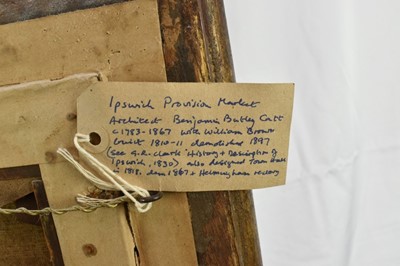 Ipswich Provision Market
Architect Benjamin Batley Catt
c 1783-1867 with William Brown
built 1810-11 demolished 1897
(See G.R. Clark 'History + Description of
Ipswich, 1830) also designed Town Hall
in 1818, dem 1867 + Helmingham rectory